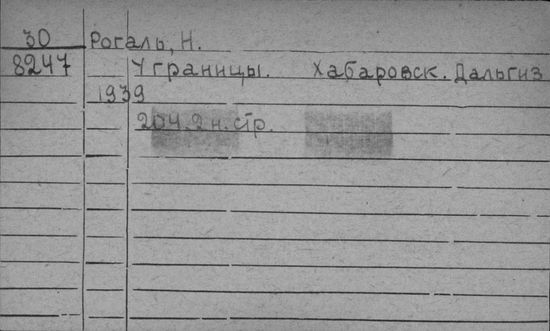 30 Рогаль, Н.
8247 У границы. Хабаровск. Дальгиз
1939
204.2 н. стр.